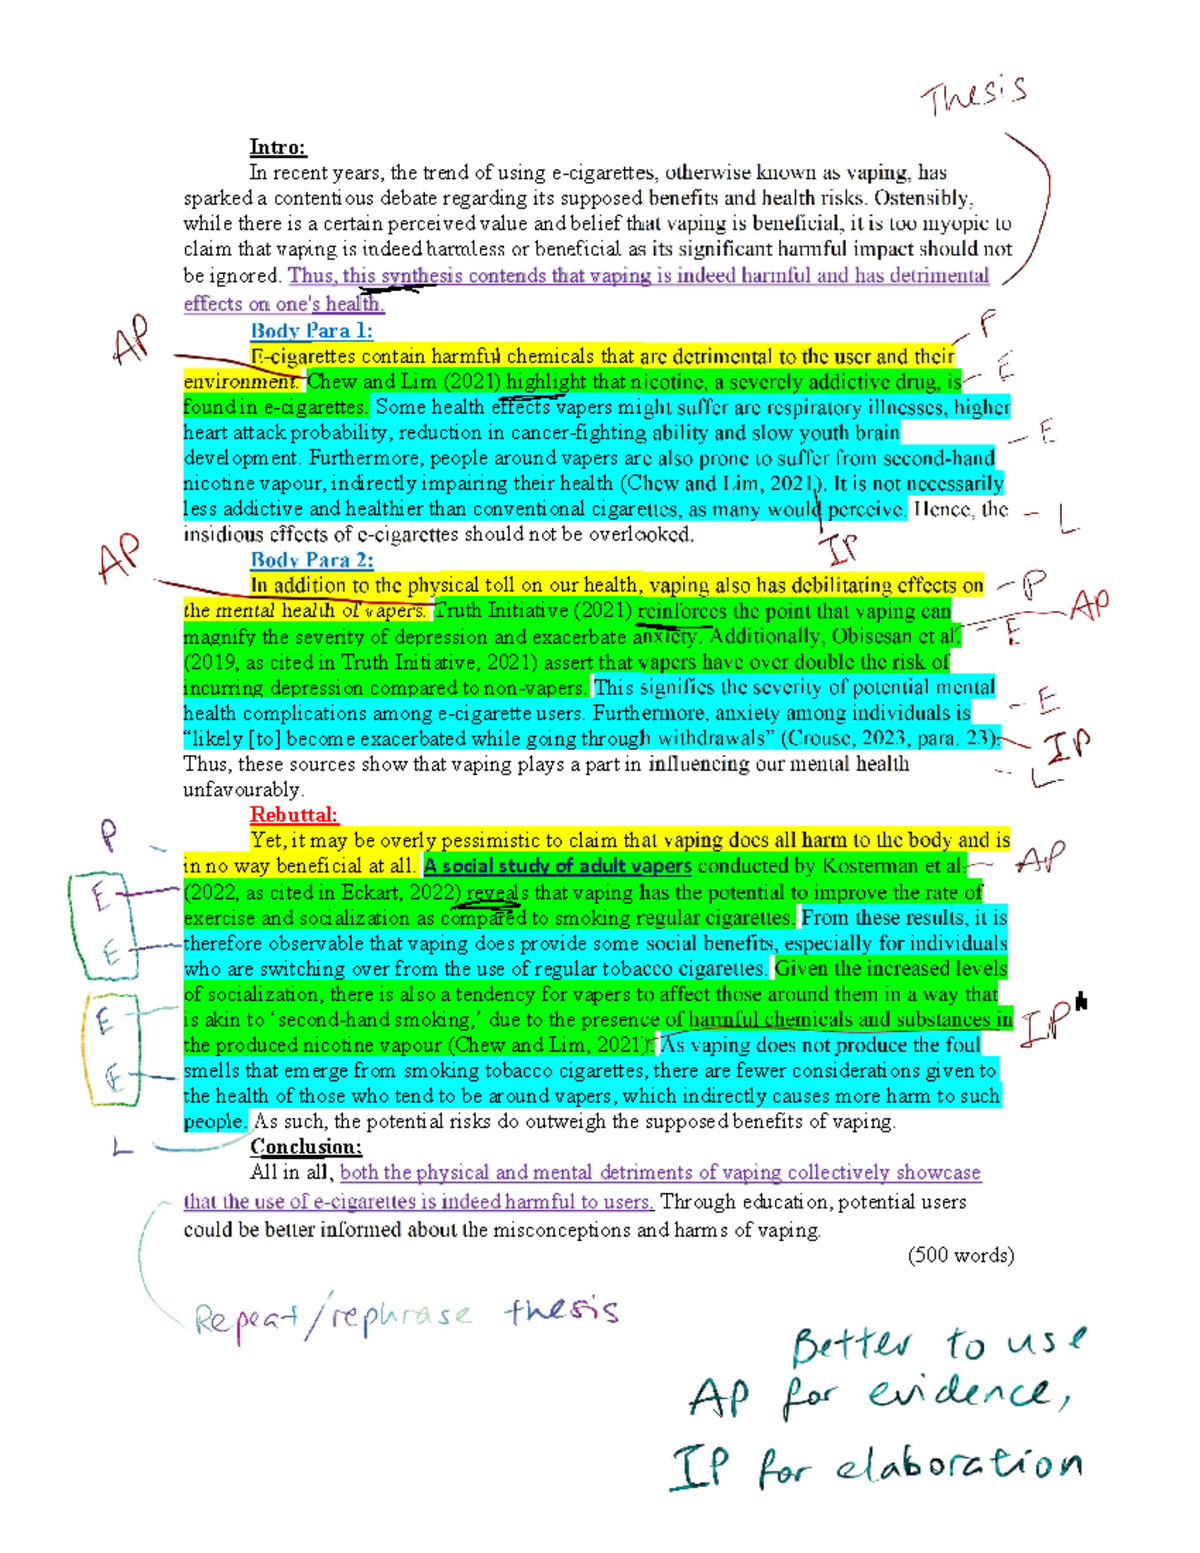 Thesis
Intro:
In recent years, the trend of using e-cigarettes, otherwise known as vaping, has
sparked a contentious debate regarding its supposed benefits and health risks. Ostensibly,
while there is a certain perceived value and belief that vaping is beneficial, it is too myopic to
claim that vaping is indeed harmless or beneficial as its significant harmful impact should not
be ignored. Thus, this synthesis contends that vaping is indeed harmful and has detrimental
effects on one's health.
Body Para 1:
AP
P
E-cigarettes contain harmful chemicals that are detrimental to the user and their
environment. Chew and Lim (2021) highlight that nicotine, a severely addictive drug, is
E
found in e-cigarettes. Some health effects vapers might suffer are respiratory illnesses, higher
heart attack probability, reduction in cancer-fighting ability and slow youth brain
E
development. Furthermore, people around vapers are also prone to suffer from second-hand
nicotine vapour, indirectly impairing their health (Chew and Lim, 2021). It is not necessarily
less addictive and healthier than conventional cigarettes, as many would perceive. Hence, the
L
insidious effects of e-cigarettes should not be overlooked.
IP
AP
Body Para 2:
In addition to the physical toll on our health, vaping also has debilitating effects on
P
the mental health of vapers. Truth Initiative (2021) reinforces the point that vaping can
AP
magnify the severity of depression and exacerbate anxiety. Additionally, Obisesan et al.
E
(2019, as cited in Truth Initiative, 2021) assert that vapers have over double the risk of
incurring depression compared to non-vapers. This signifies the severity of potential mental
E
health complications among e-cigarette users. Furthermore, anxiety among individuals is
“likely [to] become exacerbated while going through withdrawals” (Crouse, 2023, para. 23).
IP
Thus, these sources show that vaping plays a part in influencing our mental health
L
unfavourably.
Rebuttal:
P
Yet, it may be overly pessimistic to claim that vaping does all harm to the body and is
in no way beneficial at all. A social study of adult vapers conducted by Kosterman et al.
AP
E
(2022, as cited in Eckart, 2022) reveals that vaping has the potential to improve the rate of
exercise and socialization as compared to smoking regular cigarettes. From these results, it is
E
therefore observable that vaping does provide some social benefits, especially for individuals
who are switching over from the use of regular tobacco cigarettes. Given the increased levels
of socialization, there is also a tendency for vapers to affect those around them in a way that
E
is akin to ‘second-hand smoking,’ due to the presence of harmful chemicals and substances in
IP*
the produced nicotine vapour (Chew and Lim, 2021). As vaping does not produce the foul
E
smells that emerge from smoking tobacco cigarettes, there are fewer considerations given to
the health of those who tend to be around vapers, which indirectly causes more harm to such
people. As such, the potential risks do outweigh the supposed benefits of vaping.
L
Conclusion:
All in all, both the physical and mental detriments of vaping collectively showcase
that the use of e-cigarettes is indeed harmful to users. Through education, potential users
could be better informed about the misconceptions and harms of vaping.
(500 words)
Repeat/rephrase thesis
Better to use
AP for evidence,
IP for elaboration